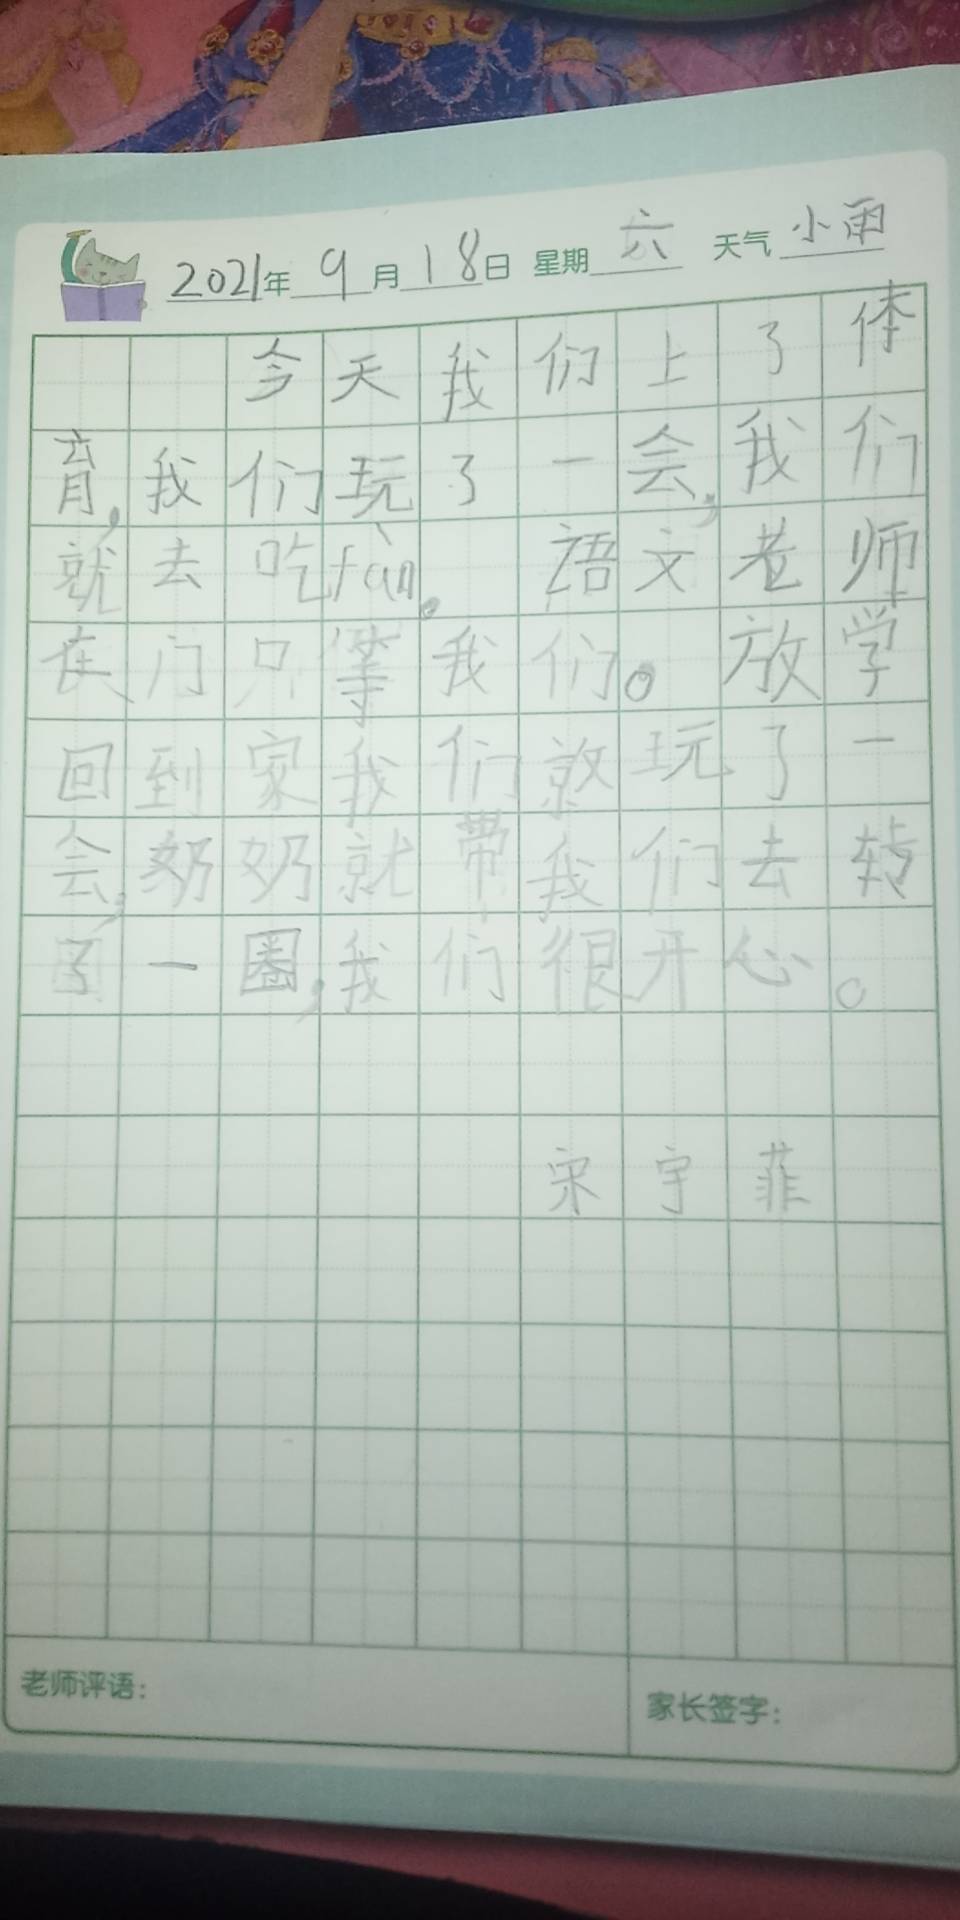 2021年9月18日 星期六 天气小雨
今天我们上了体
育,我们玩了一会,我们
就去吃fàn。语文老师
在门只等我们。放学
回到家我们就玩了一
会,奶奶就带我们去转
了一圈,我们很开心。
宋宇菲
老师评语: 家长签字: